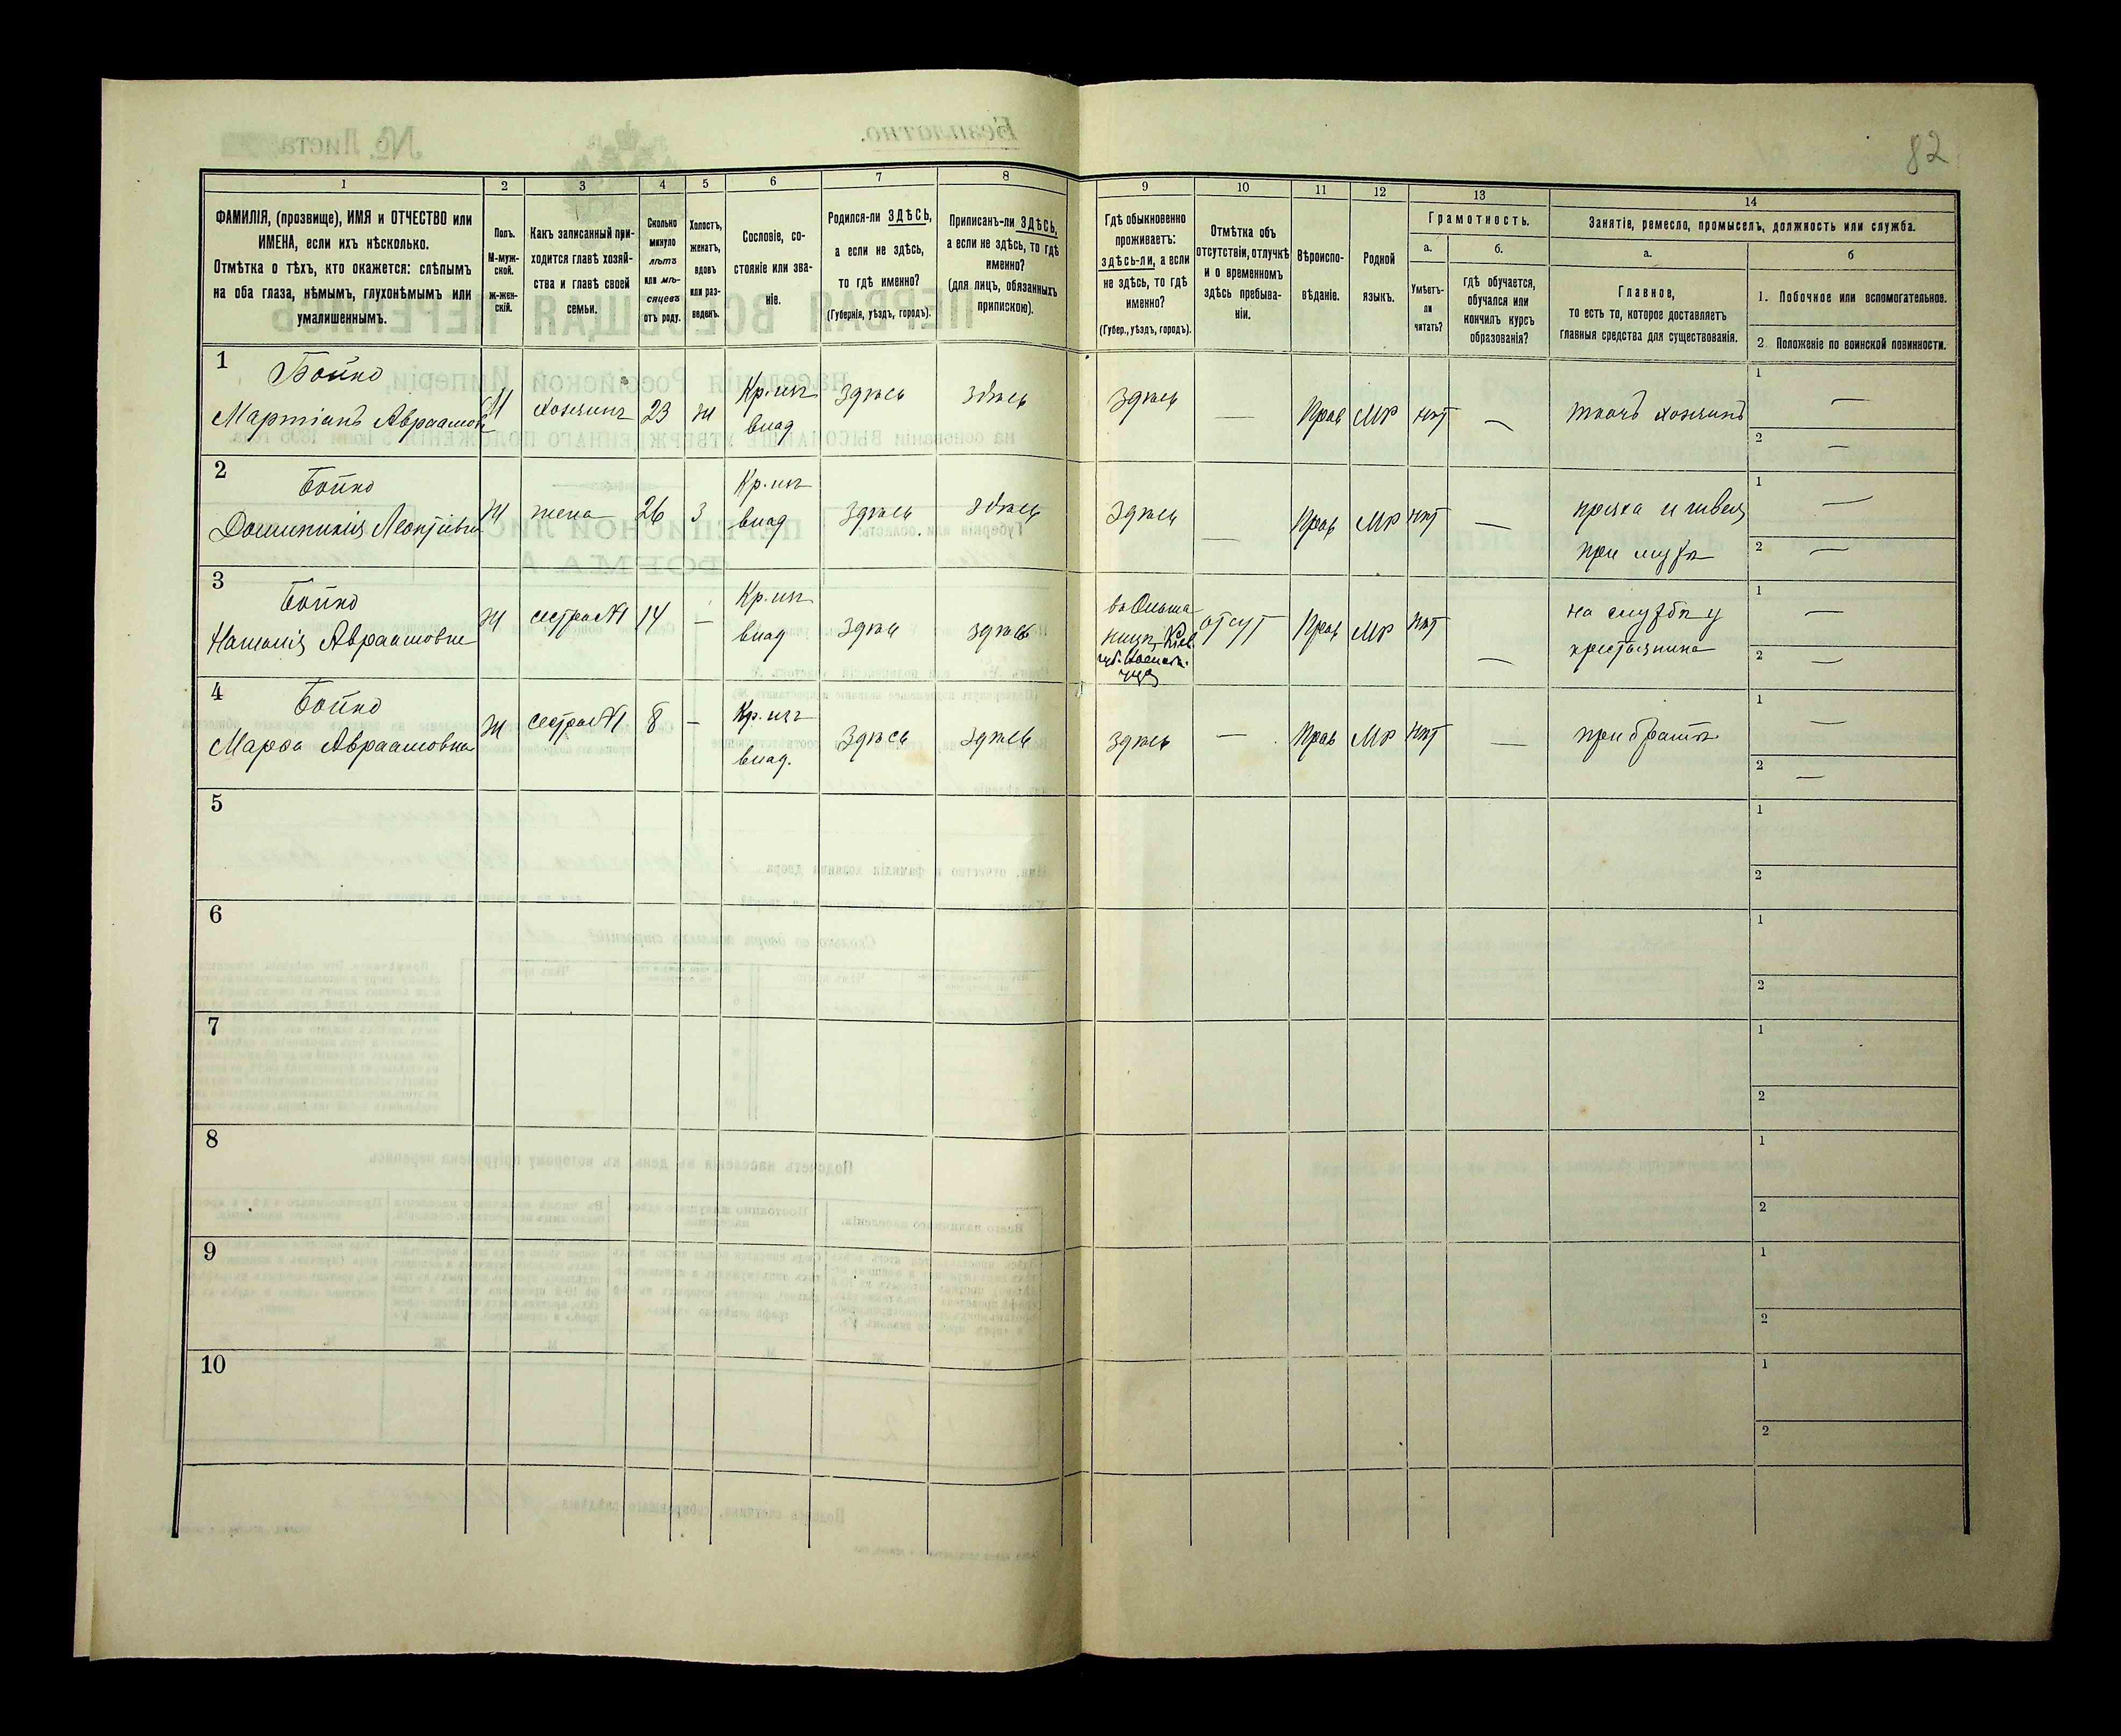 82
1
2
3
4
5
6
7
8
9
10
11
12
13
14
ФАМИЛІЯ, (прозвище), ИМЯ и ОТЧЕСТВО или
ИМЕНА, если ихъ нѣсколько.
Отмѣтка о тѣхъ, кто окажется: слѣпымъ
на оба глаза, нѣмымъ, глухонѣмымъ или
умалишеннымъ.
Полъ.
М-муж-
ской.
ж-жен-
скій.
Какъ записанный при-
ходится главѣ хозяй-
ства и главѣ своей
семьи.
Сколько
минуло
лѣтъ
или мѣ-
сяцевъ
отъ роду.
Холостъ,
женатъ,
вдовъ
или раз-
веденъ.
Сословіе, со-
стояніе или зва-
ніе.
Родился-ли ЗДѢСЬ,
а если не здѣсь,
то гдѣ именно?
(Губернія, уѣздъ, городъ).
Приписанъ-ли ЗДѢСЬ,
а если не здѣсь, то гдѣ
именно?
(для лицъ, обязанныхъ
припискою).
Гдѣ обыкновенно
проживаетъ:
здѣсь-ли, а если
не здѣсь, то гдѣ
именно?
(Губер., уѣздъ, городъ).
Отмѣтка объ
отсутствіи, отлучкѣ
и о временномъ
здѣсь пребыва-
ніи.
Вѣроиспо-
вѣданіе.
Родной
языкъ.
Грамотность.
а.
Умѣетъ-
ли
читать?
б.
гдѣ обучается,
обучался или
кончилъ курсъ
образованія?
Занятіе, ремесло, промыселъ, должность или служба.
а.
Главное,
то есть то, которое доставляетъ
главныя средства для существованія.
б
1. Побочное или вспомогательное.
2. Положеніе по воинской повинности.
1
Бойко
Мартіанъ Авраамов
М
хозяинъ
23
ж
Кр. изъ
влад
здѣсь
здѣсь
здѣсь
—
Прав
Мр
нѣт
—
ткачъ хозяинъ
1
—
2
—
2
Бойко
Домникія Леонтіевна
Ж
жена
26
З
Кр. изъ
влад
здѣсь
здѣсь
здѣсь
—
Прав
Мр
нѣт
—
пряха и швея
при мужѣ
1
—
2
—
3
Бойко
Наталія Авраамовна
Ж
сестра №1
14
—
Кр. изъ
влад
здѣсь
здѣсь
Кіев.
губ.
отсут
Прав
Мр
нѣт
—
на службѣ у
крестьянина
1
—
2
—
4
Бойко
Марѳа Авраамовна
Ж
сестра №1
8
—
Кр. изъ
влад.
здѣсь
здѣсь
здѣсь
—
Прав
Мр
нѣт
—
при братѣ
1
—
2
—
5
1
2
6
1
2
7
1
2
8
1
2
9
1
2
10
1
2